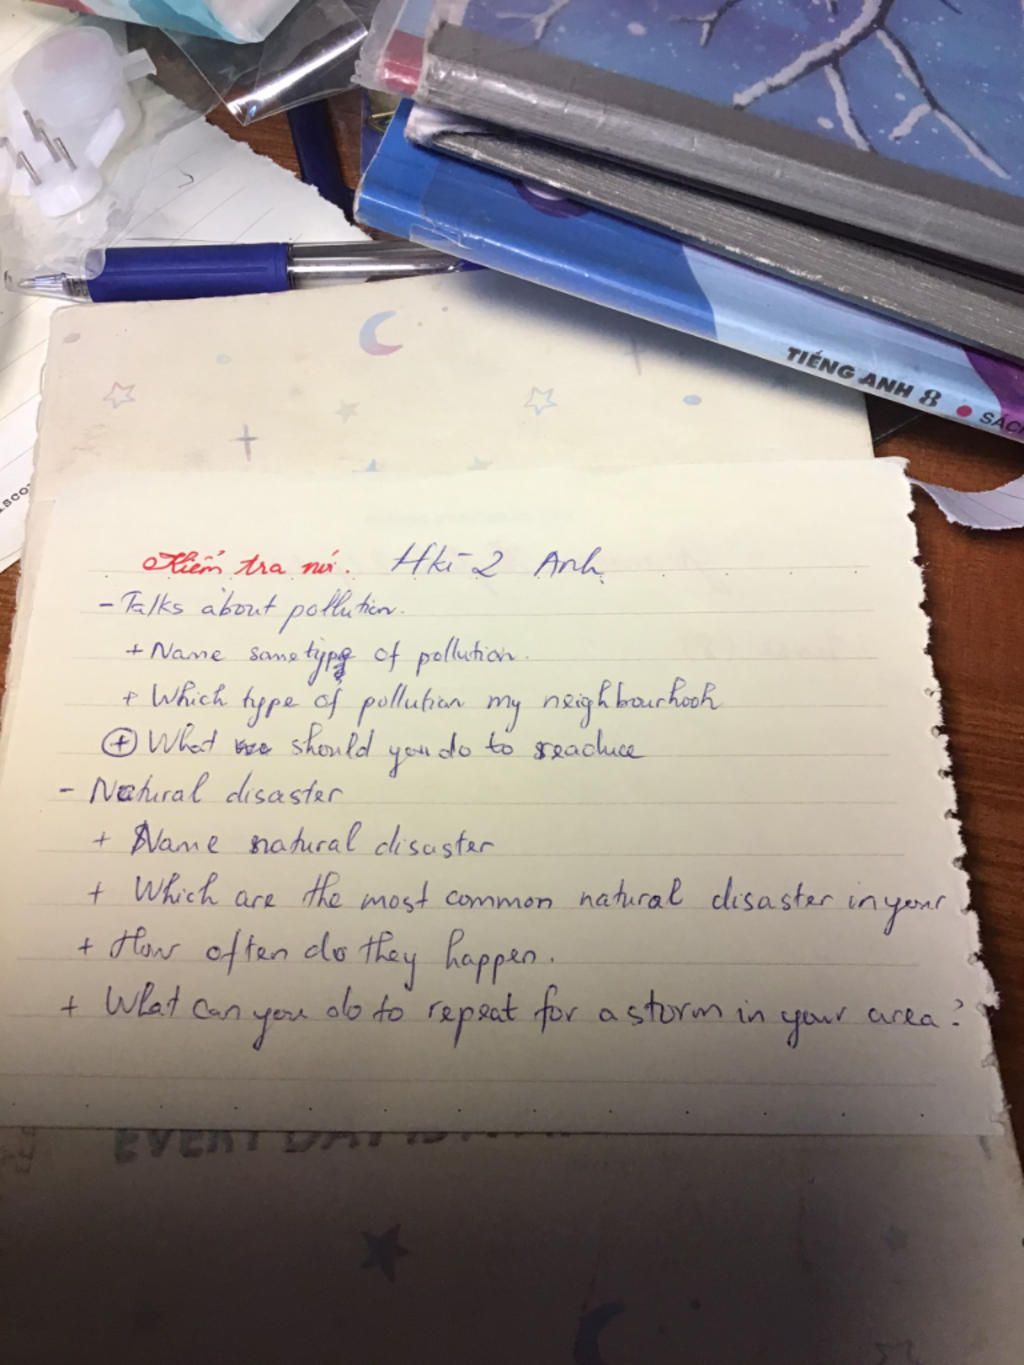 TIẾNG ANH 8 • SÁCH
Kiểm tra nói. Hkì 2 Anh
- Talks about pollution.
+ Name some type of pollution.
+ Which type of pollution my neighbourhooh
+ What should you do to readuce
- Natural disaster
+ Name natural disaster
+ Which are the most common natural disaster in your
+ How often do they happen.
+ What can you do to repeat for a storm in your area?
EVERY DAY